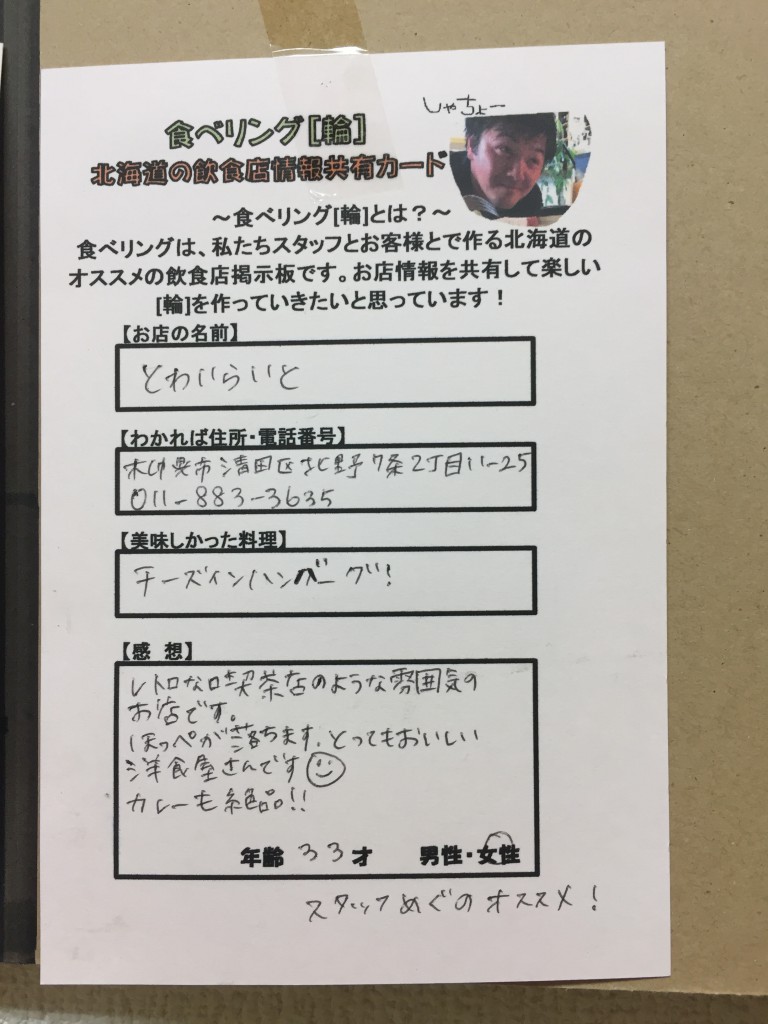 しゃちょー
食べリング[輪]
北海道の飲食店情報共有カード
～食べリング[輪]とは？～
食べリングは、私たちスタッフとお客様とで作る北海道の
オススメの飲食店掲示板です。お店情報を共有して楽しい
[輪]を作っていきたいと思っています！
【お店の名前】
とわいらいと
【わかれば住所・電話番号】
札幌市清田区北野7条2丁目11-25
011-883-3635
【美味しかった料理】
チーズインハンバーグ!
【感　想】
レトロな喫茶店のような雰囲気の
お店です。
ほっぺが落ちます、とってもおいしい
洋食屋さんです
カレーも絶品!!
年齢 33才　男性・女性
スタッフめぐのオススメ！